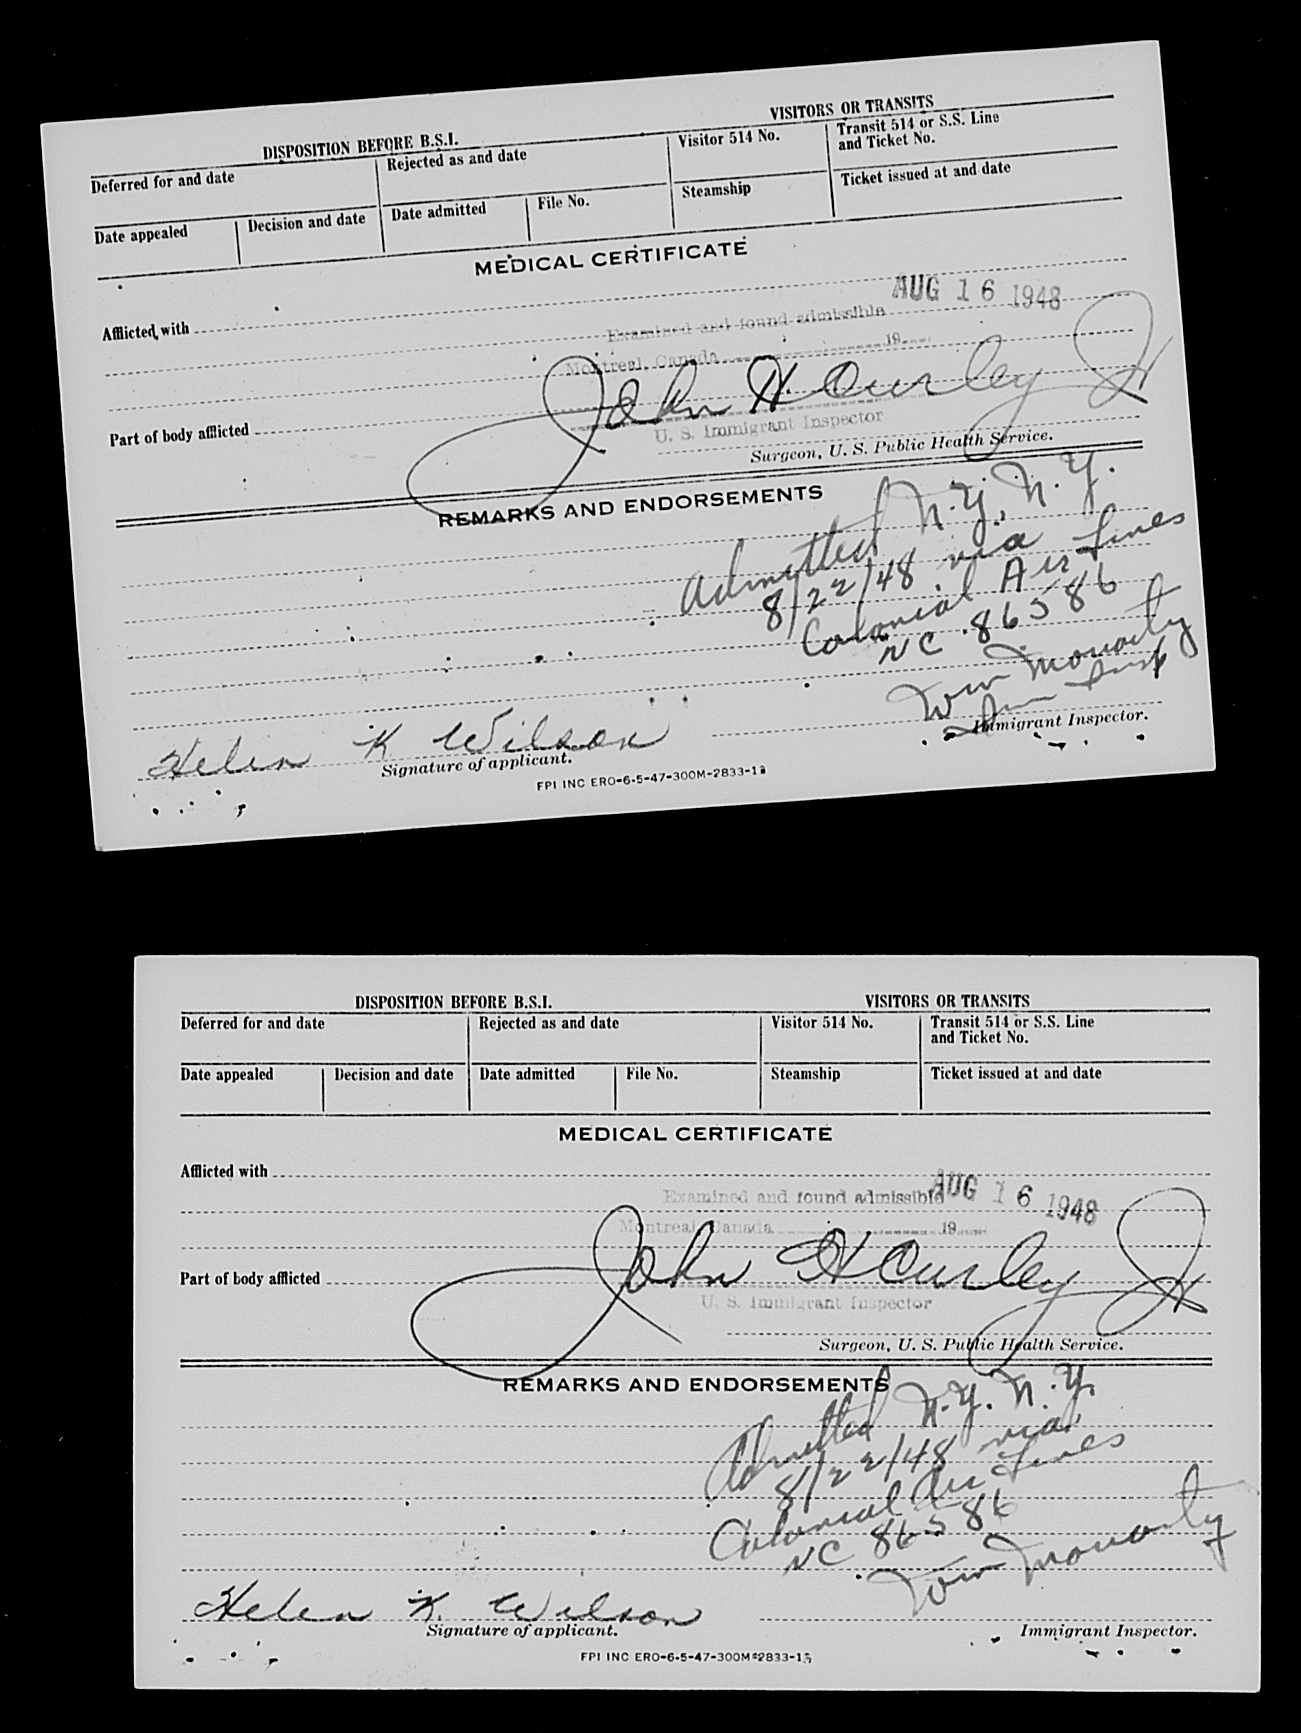 DISPOSITION BEFORE B.S.I.
VISITORS OR TRANSITS
Deferred for and date
Rejected as and date
Visitor 514 No.
Transit 514 or S.S. Line
and Ticket No.
Date appealed
Decision and date
Date admitted
File No.
Steamship
Ticket issued at and date
MEDICAL CERTIFICATE
Afflicted with
Examined and found admissible AUG 16 1948
Montreal, Canada 19
John H Curley Jr
Part of body afflicted
U. S. Immigrant Inspector
Surgeon, U. S. Public Health Service.
REMARKS AND ENDORSEMENTS
Admitted N.Y., N.Y.
8/22/48 via
Colonial Air Lines
NC 86586
Tom Moriarty
Imm Insp
Helen K Wilson
Signature of applicant.
Immigrant Inspector.
FPI INC ERO-6-5-47-300M-2833-13
DISPOSITION BEFORE B.S.I.
VISITORS OR TRANSITS
Deferred for and date
Rejected as and date
Visitor 514 No.
Transit 514 or S.S. Line
and Ticket No.
Date appealed
Decision and date
Date admitted
File No.
Steamship
Ticket issued at and date
MEDICAL CERTIFICATE
Afflicted with
Examined and found admissible AUG 16 1948
Montreal, Canada 19
John H Curley Jr
Part of body afflicted
U. S. Immigrant Inspector
Surgeon, U. S. Public Health Service.
REMARKS AND ENDORSEMENTS
Admitted N.Y. N.Y.
8/22/48 via
Colonial Air Lines
NC 86586
Tom Moriarty
Helen K. Wilson
Signature of applicant.
Immigrant Inspector.
FPI INC ERO-6-5-47-300M-2833-13